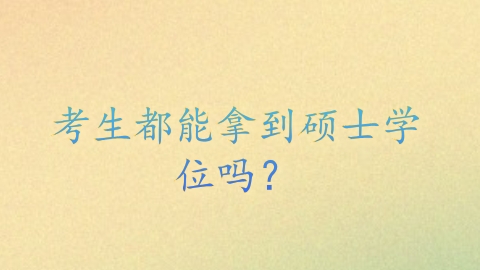 考生都能拿到硕士学
位吗？